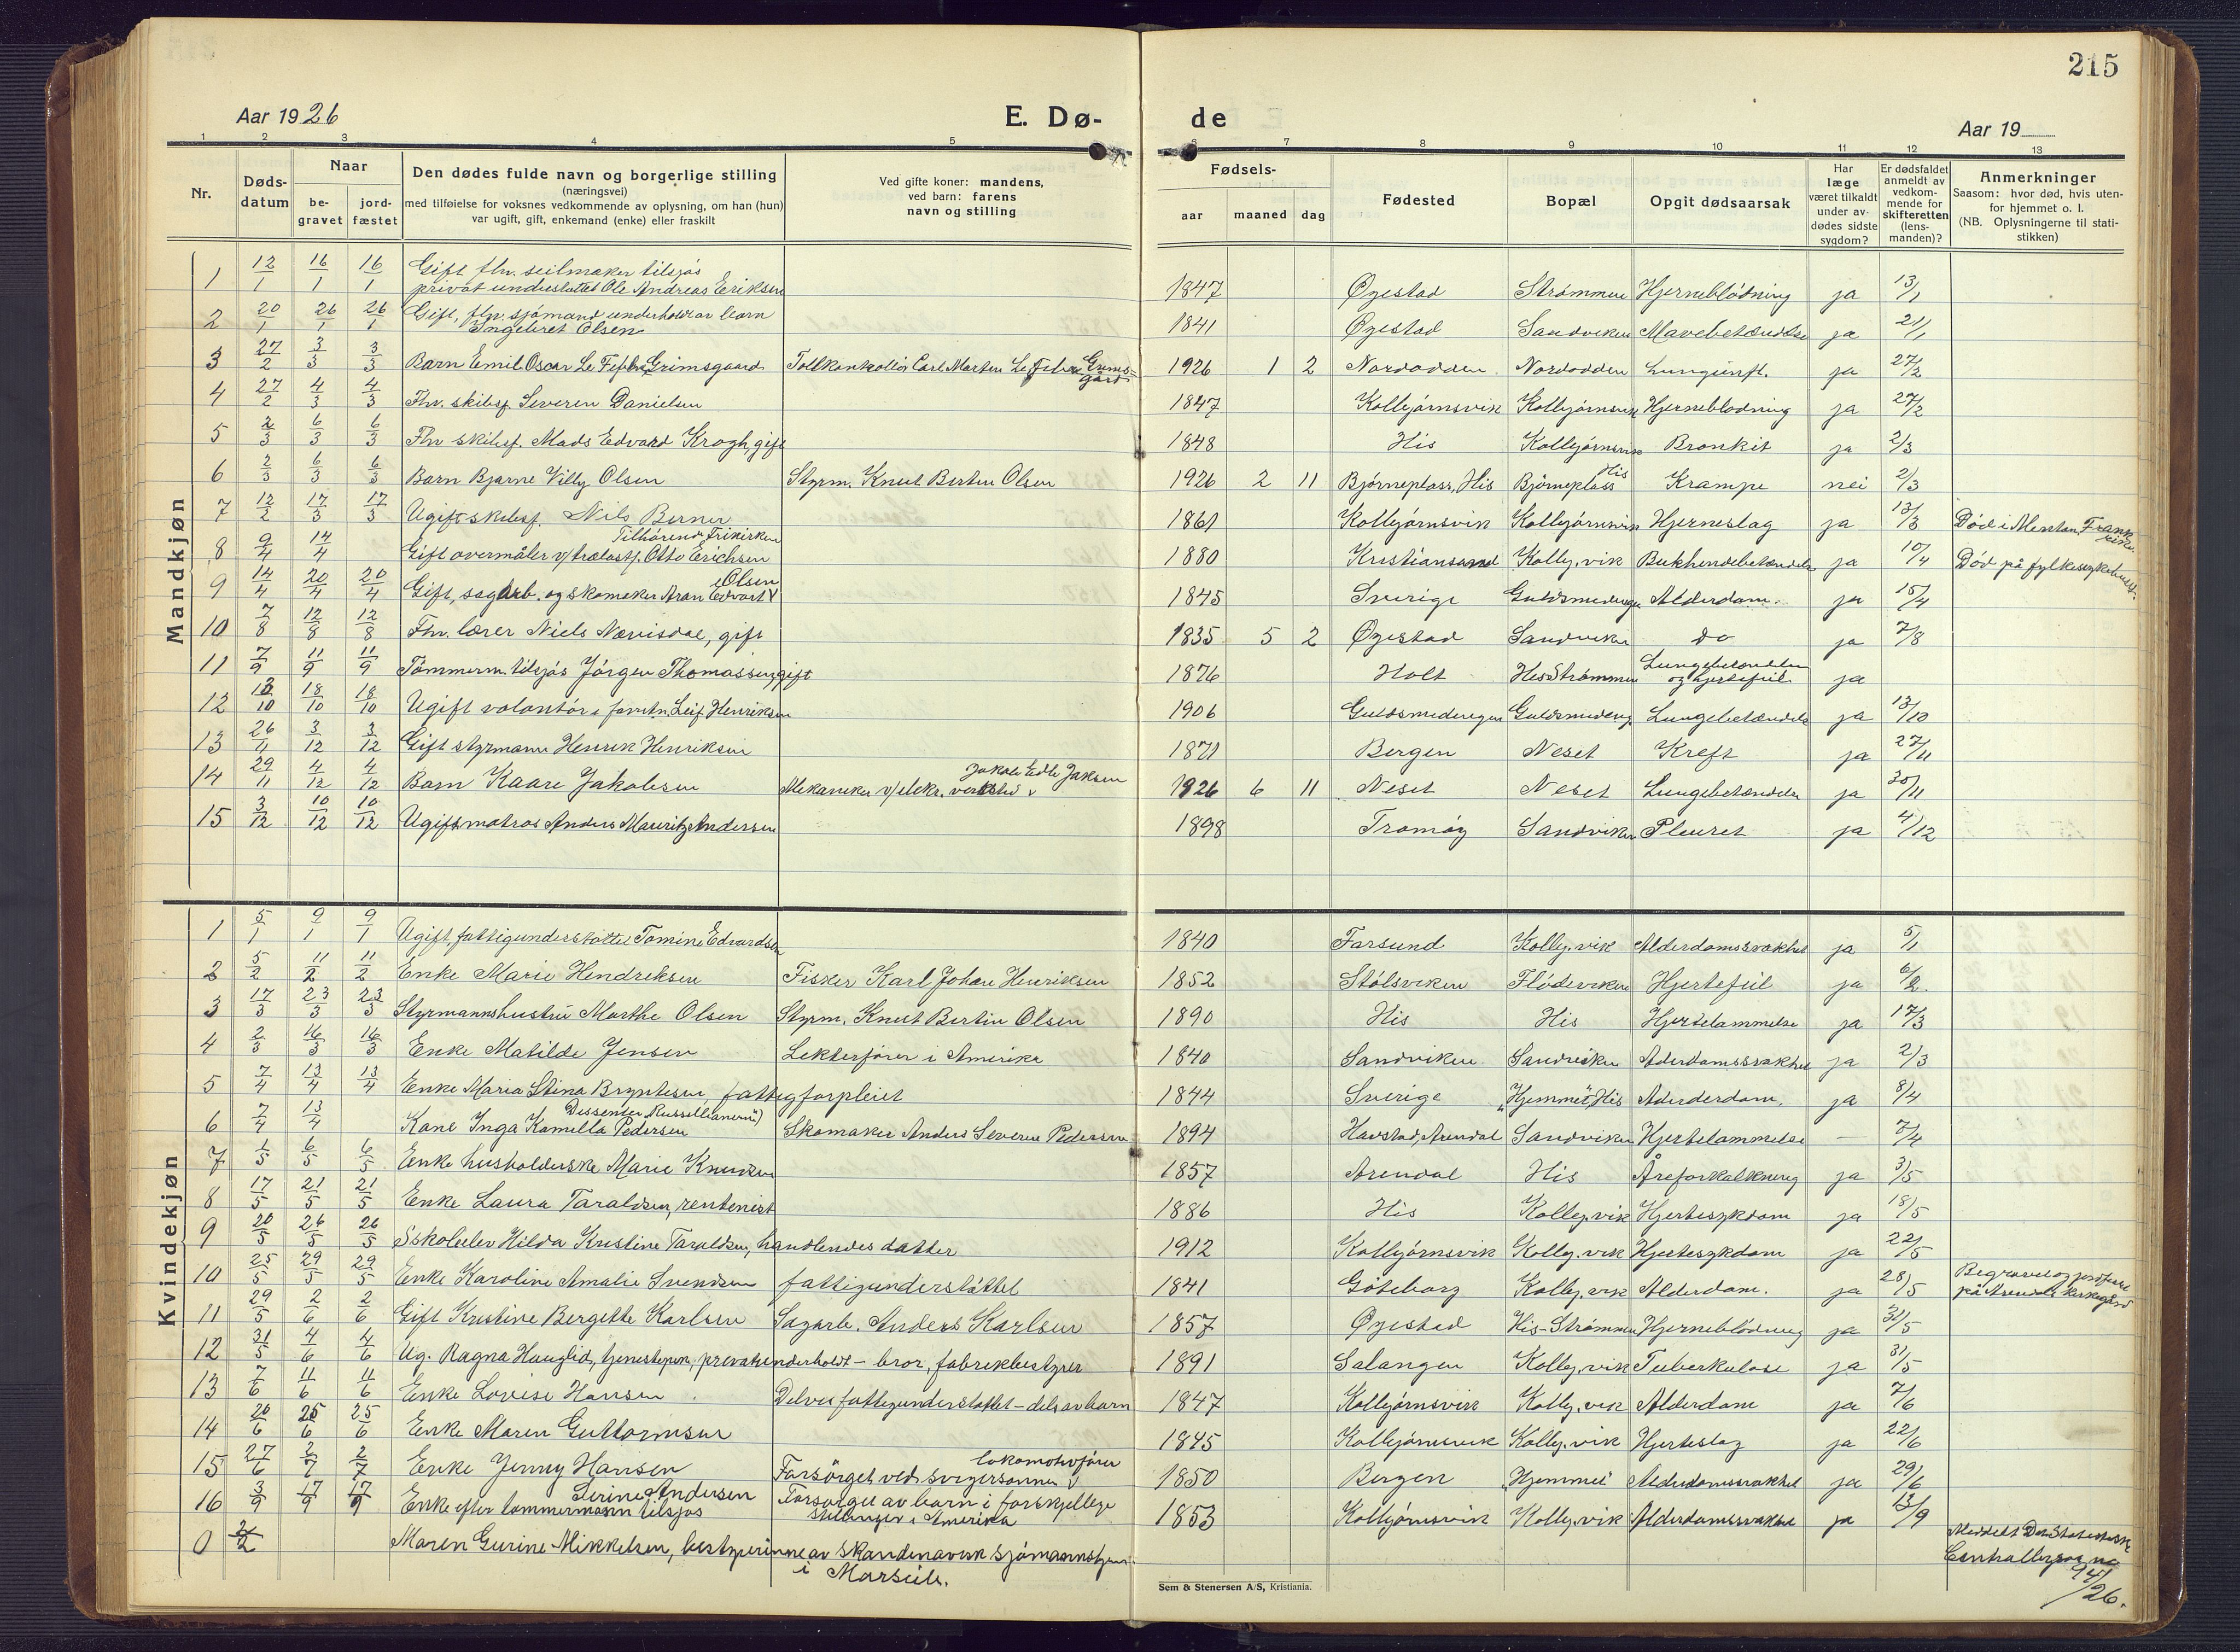 215
Aar 1926
E. Dø-
de
Aar 19
1 2 3 4 5 6 7 8 9 10 11 12 13
Nr.
Døds-
datum
Naar
be-
gravet
jord-
fæstet
Den dødes fulde navn og borgerlige stilling
(næringsvei)
med tilføielse for voksnes vedkommende av oplysning, om han (hun)
var ugift, gift, enkemand (enke) eller fraskilt
Ved gifte koner: mandens,
ved barn: farens
navn og stilling
Fødsels-
aar maaned dag
Fødested
Bopæl
Opgit dødsaarsak
Har
læge
været tilkaldt
under av-
dødes sidste
sygdom?
Er dødsfaldet
anmeldt av
vedkom-
mende for
skifteretten
(lens-
manden)?
Anmerkninger
Saasom: hvor død, hvis uten-
for hjemmet o. l.
(NB. Oplysningerne til stati-
stikken)
Mandkjøn
1 12/1 16/1 16/1 Gift fhv. seilmaker tilsjøs
privat understøttet Ole Andreas Eriksen 1847 Øyestad Strømmen Hjerneblødning ja 13/1
2 20/1 26/1 26/1 Gift, fhv. sjömand underholdt av barn
Ingebret Olsen 1841 Øyestad Sandviken Mavebetændelse ja 21/1
3 27/2 3/3 3/3 Barn Emil Oscar Le Fevre Grimsgaard Tollkontrollör Carl Morten Le Fevre Grims-
gård 1926 1 2 Nordodden Nordodden Lungeinfl. ja 27/2
4 27/2 4/3 4/3 Fhv. skibsf. Severen Danielsen 1847 Kolbjörnsvik Kolbjörnsvik Hjerneblødning ja 27/2
5 2/3 6/3 6/3 Fhv skibsf. Mads Edvard Krogh, gift 1848 His Kolbjörnsvik Bronkit ja 2/3
6 2/3 6/3 6/3 Barn Bjarne Villy Olsen Styrm. Knut Bertin Olsen 1926 2 11 Bjørneplass, His Björneplass His Krampe nei 2/3
7 12/2 17/3 17/3 Ugift skibsf. Nils Berner 1861 Kolbjörnsvik Kolbjörnsvik Hjerneslag ja 13/3 Död i Mentan, Frank-
rike.
8 9/4 14/4 Tilhörende Frikirken
Gift overmåler v/trælastf. Otto Erichsen 1880 Kristiansand Kolbj.vik Bukhindebetændelse ja 10/4 Död på fylkessykehuset.
9 14/4 20/4 20/4 Gift, sagarb. og skomaker Aron Edvart Olsen 1845 Sverige Guldsmedengen Alderdom. ja 15/4
10 7/8 12/8 12/8 Fhv. lærer Niels Nævisdal, gift 1835 5 2 Øyestad Sandviken do ja 7/8
11 7/9 11/9 11/9 Tömmerm. tilsjös Jörgen Thomassen, gift 1876 Holt His Strömmen Lungebetændelse
og hjertefeil ja
12 12/10 18/10 18/10 Ugift volontör i forretn. Leif Henriksen 1906 Guldsmedengen Guldsmedeng. Lungebetændelse ja 13/10
13 26/11 3/12 3/12 Gift styrmann Henrik Henriksen 1871 Bergen Neset Kreft ja 27/11
14 29/11 4/12 4/12 Barn Kaare Jakobsen Mekaniker v/elekr. verksted Jakob Edle Jakobsen 1926 6 11 Neset Neset Lungebetændelse ja 30/11
15 3/12 10/12 10/12 Ugift matros Anders Mauritz Andersen 1898 Tromöy Sandviken Pleuret ja 4/12
Kvindekjøn
1 5/1 9/1 9/1 Ugift, fattigunderstöttet Tomine Edvardsen 1840 Farsund Kolbj.vik Alderdomssvakhet ja 5/1
2 5/2 11/2 11/2 Enke Marie Hendriksen Fisker Karl Johan Henriksen 1852 Stölsviken Flödeviken Hjertefeil ja 6/2.
3 17/3 23/3 23/3 Styrmannshustru Marthe Olsen Styrm. Knut Bertin Olsen 1890 His His Hjertelammelse ja 17/3
4 2/3 16/3 16/3 Enke Matilde Jensen Lekterförer i Amerika 1840 Sandviken Sandviken Alderdomssvakhet ja 2/3
5 7/4 13/4 13/4 Enke Maria Stina Bryntesen, fattigforpleiet 1844 Sverige "Hjemmet" His Alderdom. ja 8/4
6 7/4 13/4 Dissenter, Russellianerne)
Kone Inga Kamilla Pedersen Skomaker Anders Severin Pedersen 1894 Havstad, Arendal Sandviken Hjertelammelse — 7/4
7 1/5 6/5 6/5 Enke husholderske Marie Knudsen 1857 Arendal His Åreforkalkning ja 3/5
8 17/5 21/5 21/5 Enke Laura Taraldsen, rentenist 1886 His Kolbj.vik Hjertesykdom ja 18/5
9 20/5 26/5 26/5 Skoleelev Hilda Kristine Taraldsen, handlendes datter 1912 Kolbjörnsvik Kolbj.vik Hjertesykdom ja 22/5
10 25/5 29/5 29/5 Enke Karoline Amalie Svendsen fattigunderstöttet 1841 Göteborg Kolbj.vik Alderdom. ja 28/5 Begravet og jordfæstet
på Arendals kirkegård
11 29/5 2/6 2/6 Gift Kristine Bergette Karlsen Sagarb. Anders Karlsen 1857 Øyestad His-Strömmen Hjerneblödning ja 31/5
12 31/5 4/6 4/6 Ug. Ragna Hauglid, tjenestepike, privatunderholdt – bror, fabrikbestyrer 1891 Salangen Kolbj.vik Tuberkulose ja 31/5
13 7/6 11/6 11/6 Enke Lovise Hansen Delvis fattigunderstöttet – dels av barn 1847 Kolbjörnsvik Kolbj.vik Alderdom ja 7/6
14 20/6 25/6 25/6 Enke Maren Guttormsen 1845 Kolbjörnsvik Kolbj.vik Hjerteslag ja 22/6
15 27/6 2/7 2/7 Enke Jenny Hansen Forsörget ved svigersönnen lokomotivförer 1850 Bergen "Hjemmet" Alderdomssvakhet ja 29/6
16 3/9 17/9 17/9 Serine Andersen
Enke efter tömmermann tilsjös Forsörget av barn i forskjellige
stillinger i Amerika 1853 Kolbjörnsvik Kolbj.vik Alderdomssvakhet ja 13/9
0 Maren Gurine Mikkelsen, bestyrerinne av skandinavisk sjömannshjem
i Marseile.
Meddelt Det Statistiske
Centralbyrå
/26.
Sem & Stenersen A/S, Kristiania.